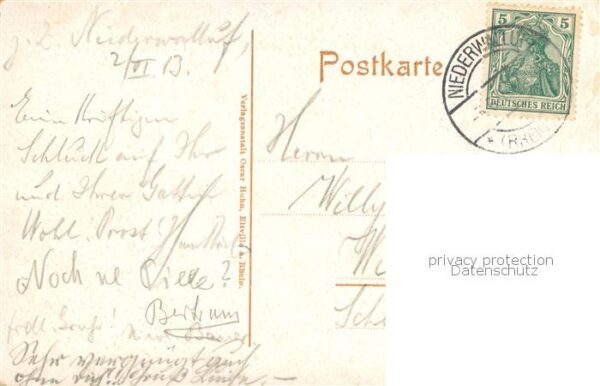 z. Z. Niederwalluf,
2/VI 13.
Einen kräftigen
Schluck auf Ihr
und Ihrer Gattin
Wohl. Prost!
Noch ne Pulle?
Bertram
frdl. Gruß!
Sehr vergnügt auch
ohne
Verlagsanstalt Oscar Huhn, Eltville a. Rhein.
Postkarte
5 5
DEUTSCHES REICH
NIEDERWALLUF
* (RHEIN)
Herrn
Willy
privacy protection
Datenschutz